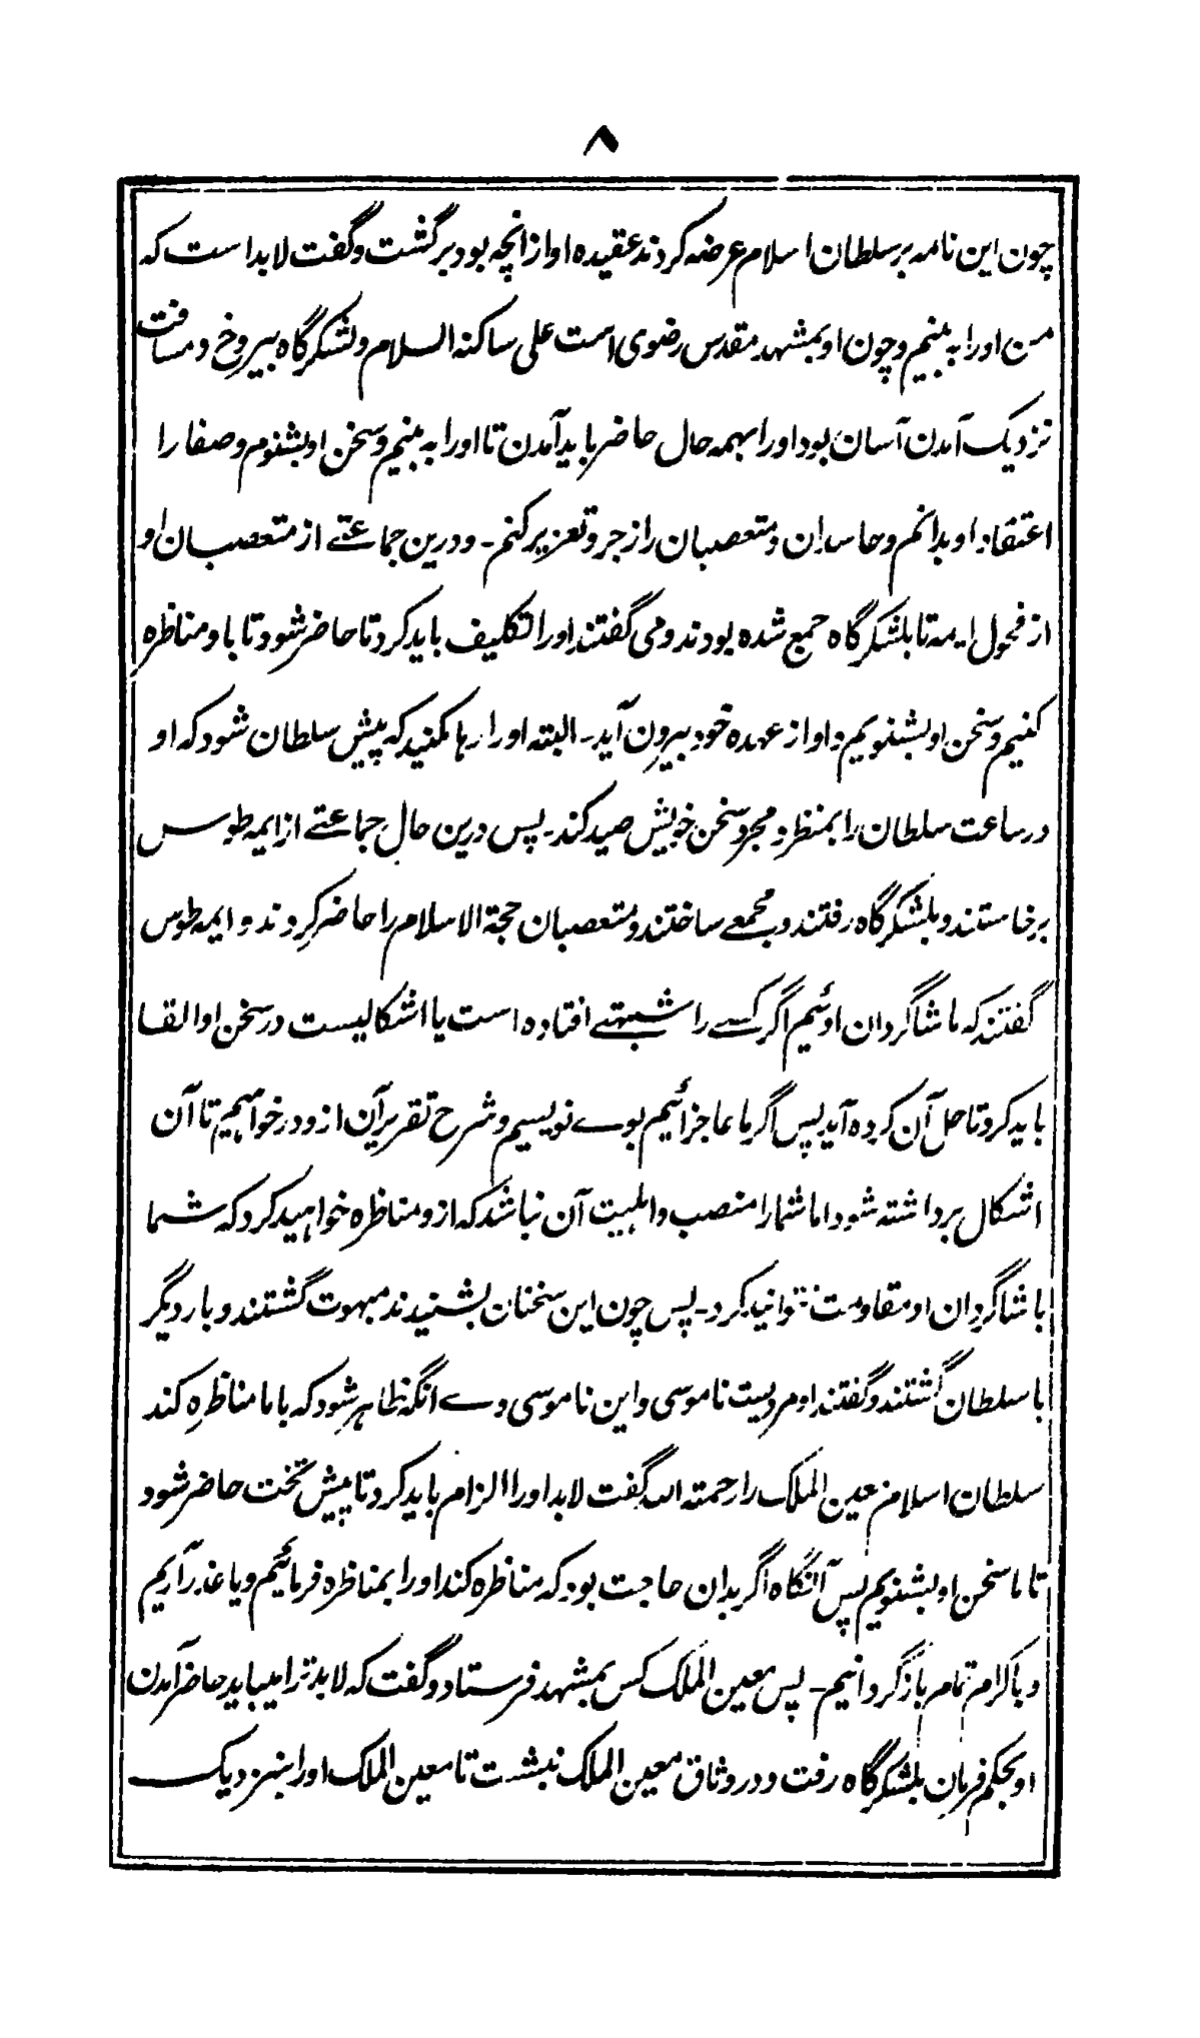 ۸
چون این نامه بر سلطان اسلام عرضه کردند عقیده او از انچه بود برگشت و گفت لابد است که
من اورا به بینم و چون او بمشهد مقدس رضوی است علی ساکنه السلام و لشکرگاه بیروخ و مسافت
نزدیک آمدن آسان بود اورا بهمه حال حاضر باید آمدن تا اورا به بینم و سخن او بشنوم و صفا را
اعتقاد او بدانم و حاسدان و متعصبان را زجر و تعزیر کنم - و درین جماعتے از متعصبان او
از فحول ایمه تا بلشکرگاه جمع شده بودند و می گفتند اورا تکلیف باید کرد تا حاضر شود تا باو مناظره
کنیم و سخن او بشنویم و او از عهده خود بیرون آید - البته اورا رها مکنید که پیش سلطان شود که او
در ساعت سلطان را بمنظر و مجرد سخن خویش صید کند - پس درین حال جماعتے از ایمه طوس
برخاستند و بلشکرگاه رفتند و مجمعے ساختند و متعصبان حجة الاسلام را حاضر کردند و ایمه طوس
گفتند که ما شاگردان اوئیم اگر کسے را شبهتے افتاده است یا اشکالیست در سخن او القا
باید کرد تا حل آن کرده آید پس اگر ما عاجز ائیم بوے نویسیم و شرح تقریر آن ازو درخواهیم تا آن
اشکال برداشته شود اما شمارا منصب و اهلیت آن نباشد که ازو مناظره خواهید کرد که شما
با شاگردان او مقاومت نتوانید کرد - پس چون این سخنان بشنیدند مبهوت گشتند و بار دیگر
با سلطان گشتند و گفتند او مردیست ناموسی و این ناموسی وے انگه ظاهر شود که با ما مناظره کند
سلطان اسلام معین الملک را رحمته الله گفت لابد اورا الزام باید کرد تا پیش تخت حاضر شود
تا ما سخن او بشنویم پس آنگاه اگر بدان حاجت بود که مناظره کند اورا بمناظره فرمائیم و یا عذر آریم
و با کرام تمام باز گردانیم - پس معین الملک کس بمشهد فرستاد و گفت که لابد ترا میباید حاضر آمدن
او بحکم فرمان بلشکرگاه رفت و در وثاق معین الملک بنشست تا معین الملک اورا بنزدیک